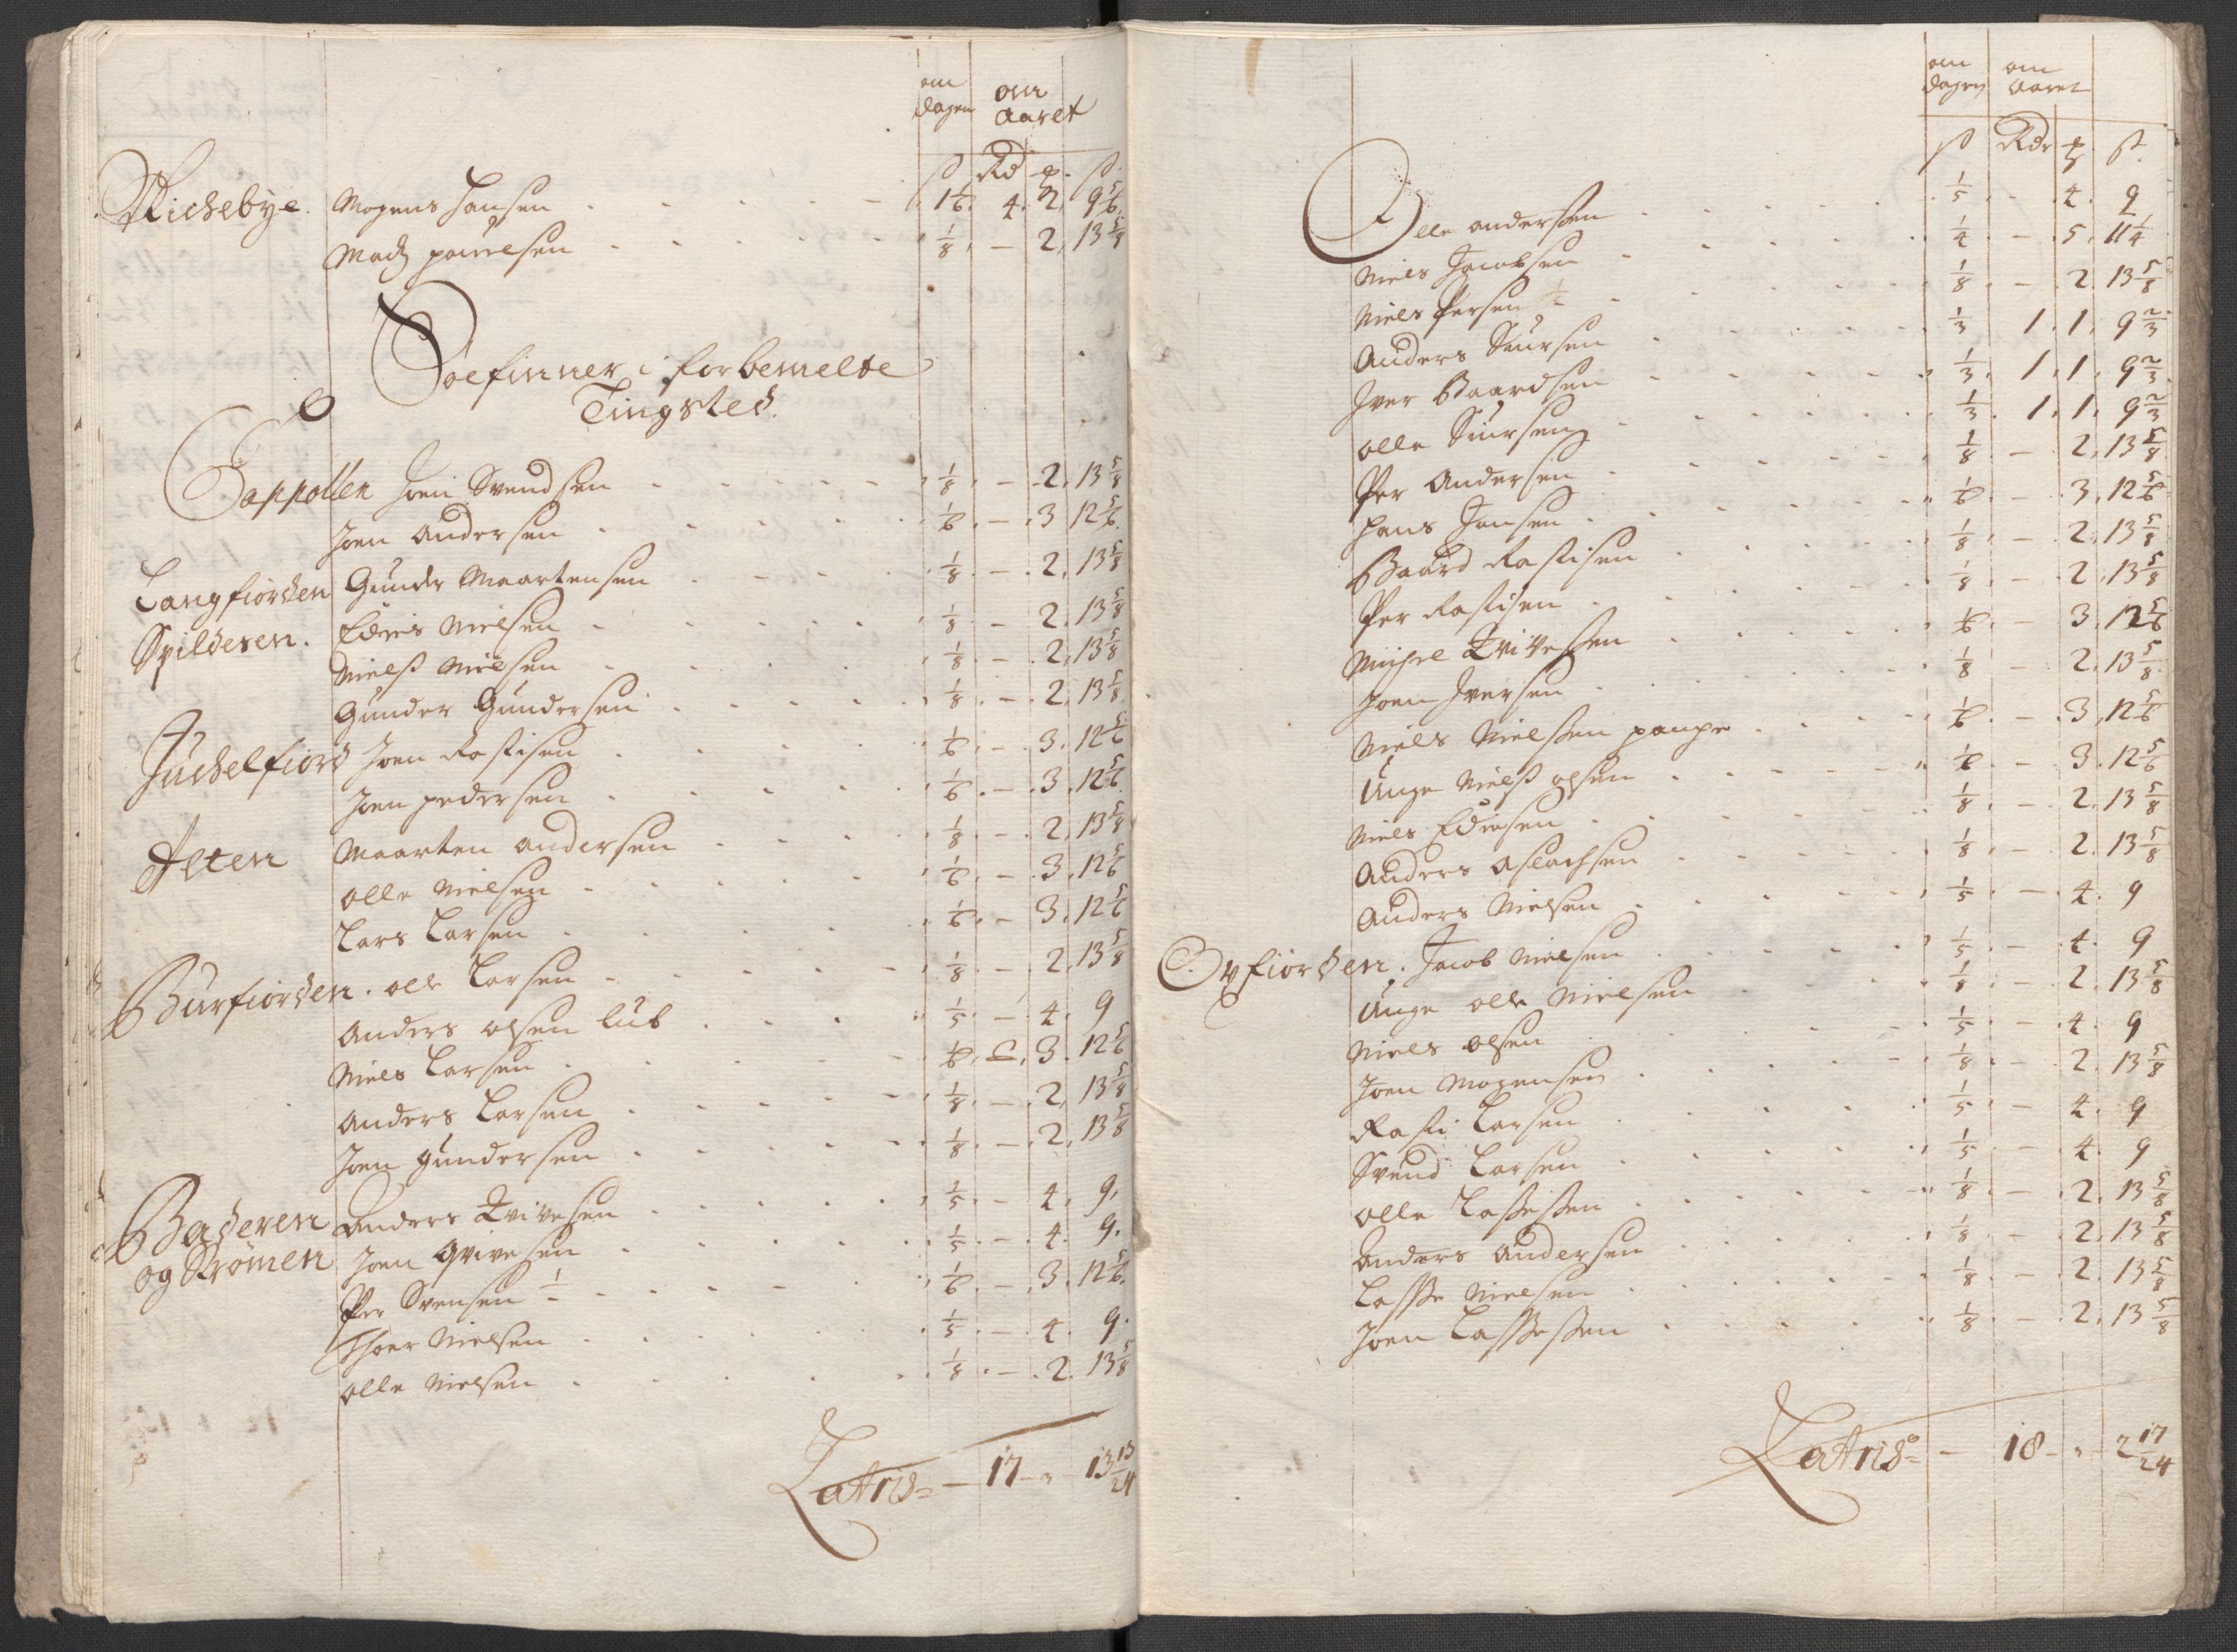 om dagen om Aaret
ß Rd ß
Richebye. Mogens Hansen 1 1/6. 4. 2. 9 5/6.
Madz pouelsen 1/8. - 2. 13 5/8
Søefinner i forbemelte
Tingsted.
Joen Svendsen 1/8. - 2. 13 5/8
Joen Andersen 1/6. - 3 12 5/6.
Langfiorden Gunder Maartensen 1/8. - 2. 13 5/8
Spilderen. Nielsen 1/8. - 2. 13 5/8
Nielß Nielsen 1/8. - 2. 13 5/8
Gunder Gundersen 1/8. - 2. 13 5/8
Juchelfiord Joen Rastisen 1/6. - 3. 12 5/6
Joen pedersen 1/6. - 3. 12 5/6.
Alten Maarten andersen 1/8. - 2. 13 5/8
olle Nielsen 1/6. - 3. 12 5/6
Lars Larsen 1/6. - 3. 12 5/6
Burfiorden. olle Larsen 1/8. - 2. 13 5/8
Anders olsen lub 1/5. - 4. 9
Niels Larsen 1/6. 3. 12 5/6
Anders Larsen 1/8. - 2. 13 5/8
Joen gundersen 1/8. - 2. 13 5/8
Baderen Anders Qvivesen 1/5. - 4. 9.
og Strømen Joen Qvivesen 1/5. - 4. 9.
Per Svensen 1/6. - 3. 12 5/6.
Thoer Nielsen 1/5. - 4. 9.
olle Nielsen 1/8. - 2. 13 5/8
Latris - 17 - 13 13/24
om dagen om Aaret
ß Rdr ß.
Olle anderßen 1/5 - 4. 9
Niels Jacobsen 1/4 - 5. 11 1/4
Niels Persen 1/8 - 2. 13 5/8
Anders Siursen 1/3 1. 1. 9 2/3
Iver Baardsen 1/3. 1. 1. 9 2/3
olle Siursen 1/3. 1. 1. 9 2/3
Per Andersen 1/8. - 2. 13 5/8
Hans Jonsen 1/6. - 3. 12 5/6
Baard Rastisen 1/8. - 2. 13 5/8
Per Rastisen 1/8. - 2. 13 5/8
Michel Qviveßen 1/6. - 3. 12 5/6
Joen Iversen 1/8 - 2. 13 5/8.
Niels Nielßen 1/6. - 3. 12 5/6
Unge Nielß olsen 1/6. - 3. 12 5/6
Niels 1/8. - 2. 13 5/8
Anders Aslachsen 1/8. - 2. 13 5/8
Anders Nielsen 1/5. - 4. 9
Oxfiorden. Jacob Nielsen 1/5. - 4. 9
Unge olle Nielsen 1/8. - 2. 13 5/8
Niels olsen 1/5. - 4. 9
Joen Mogensen 1/8. - 2. 13 5/8
Rasti Larsen 1/5. - 4. 9
Svend Larsen 1/5 - 4. 9
olle Laßeßen 1/8. - 2. 13 5/8
Anders Andersen 1/8. - 2. 13 5/8
Lasße Nielsen 1/8. - 2. 13 5/8
Joen Lasßeßen 1/8. - 2. 13 5/8
Latris - 18 - 2 17/24